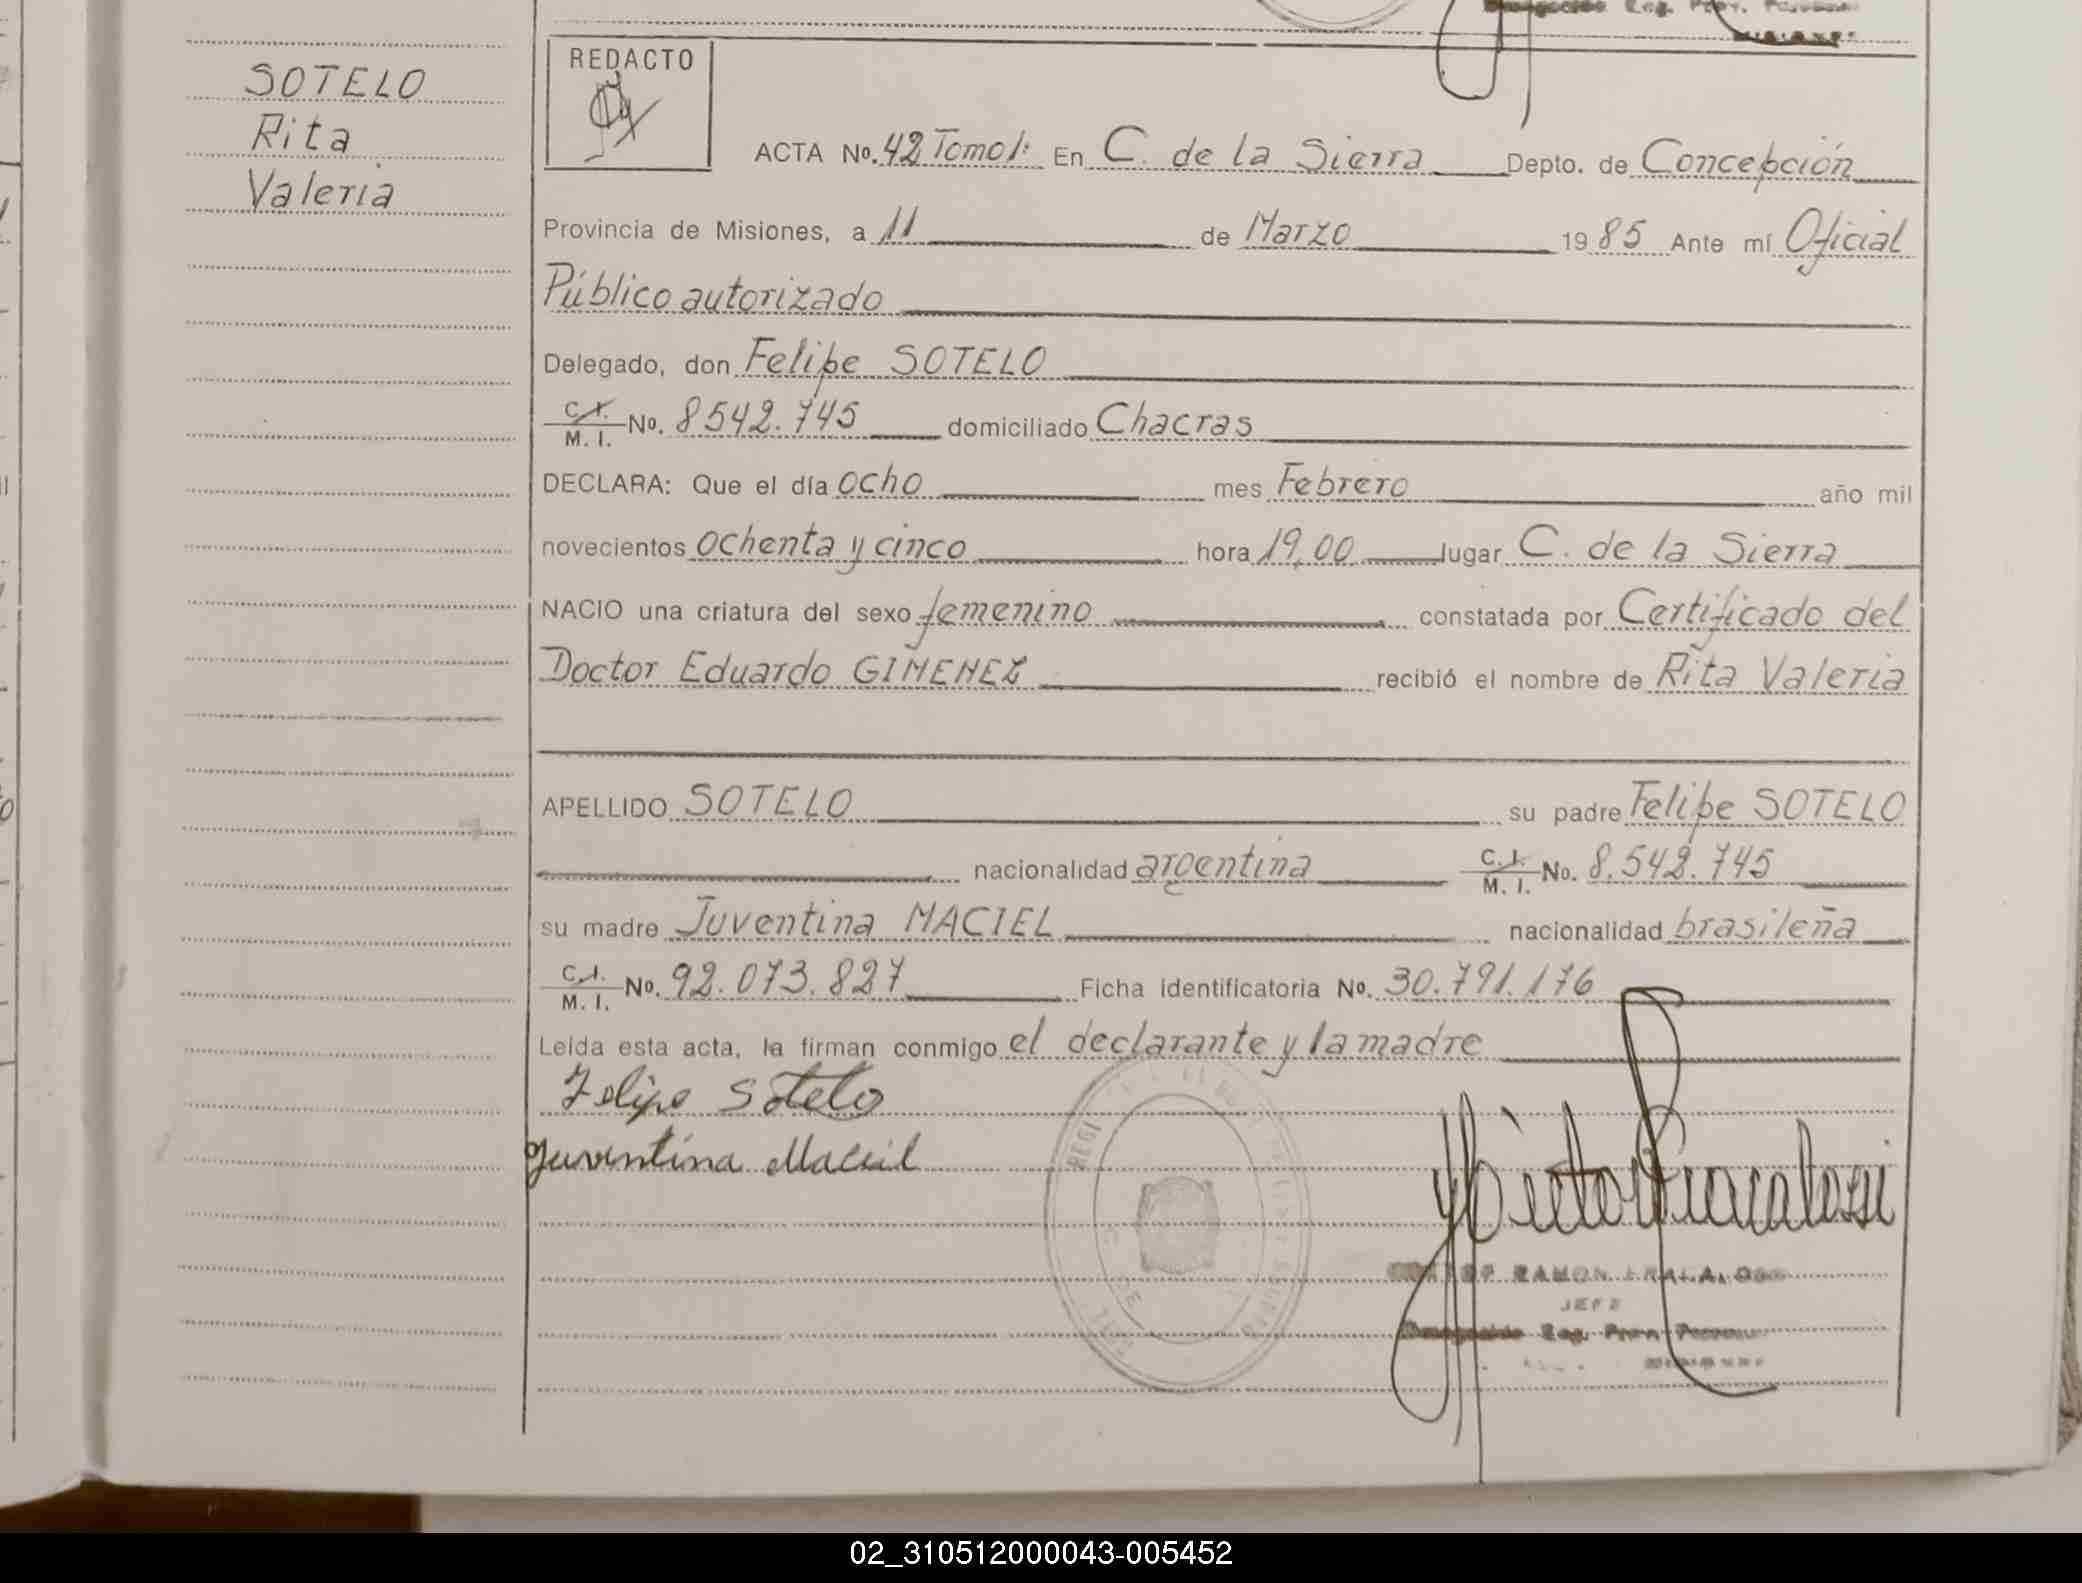 SOTELO
Rita
Valeria
REDACTO
ACTA No. 42 Tomo I: En C. de la Sierra Depto. de Concepción
Provincia de Misiones, a 11 de Marzo 1985 Ante mí Oficial
Público autorizado
Delegado, don Felipe SOTELO
C. I. M. I. No. 8542.745 domiciliado Chacras
DECLARA: Que el día ocho mes Febrero año mil
novecientos ochenta y cinco hora 19,00 lugar C. de la Sierra
NACIO una criatura del sexo femenino constatada por Certificado del
Doctor Eduardo GIMENEZ recibió el nombre de Rita Valeria
APELLIDO SOTELO su padre Felipe SOTELO
nacionalidad argentina C. I. M. I. No. 8.542.745
su madre Juventina MACIEL nacionalidad brasileña
C. I. M. I. No. 92.073.827 Ficha identificatoria No. 30.791.176
Leída esta acta, la firman conmigo el declarante y la madre
Felipe Sotelo
Juventina Maciel
RAMON
JEFE
Reg. Prov.
02_310512000043-005452